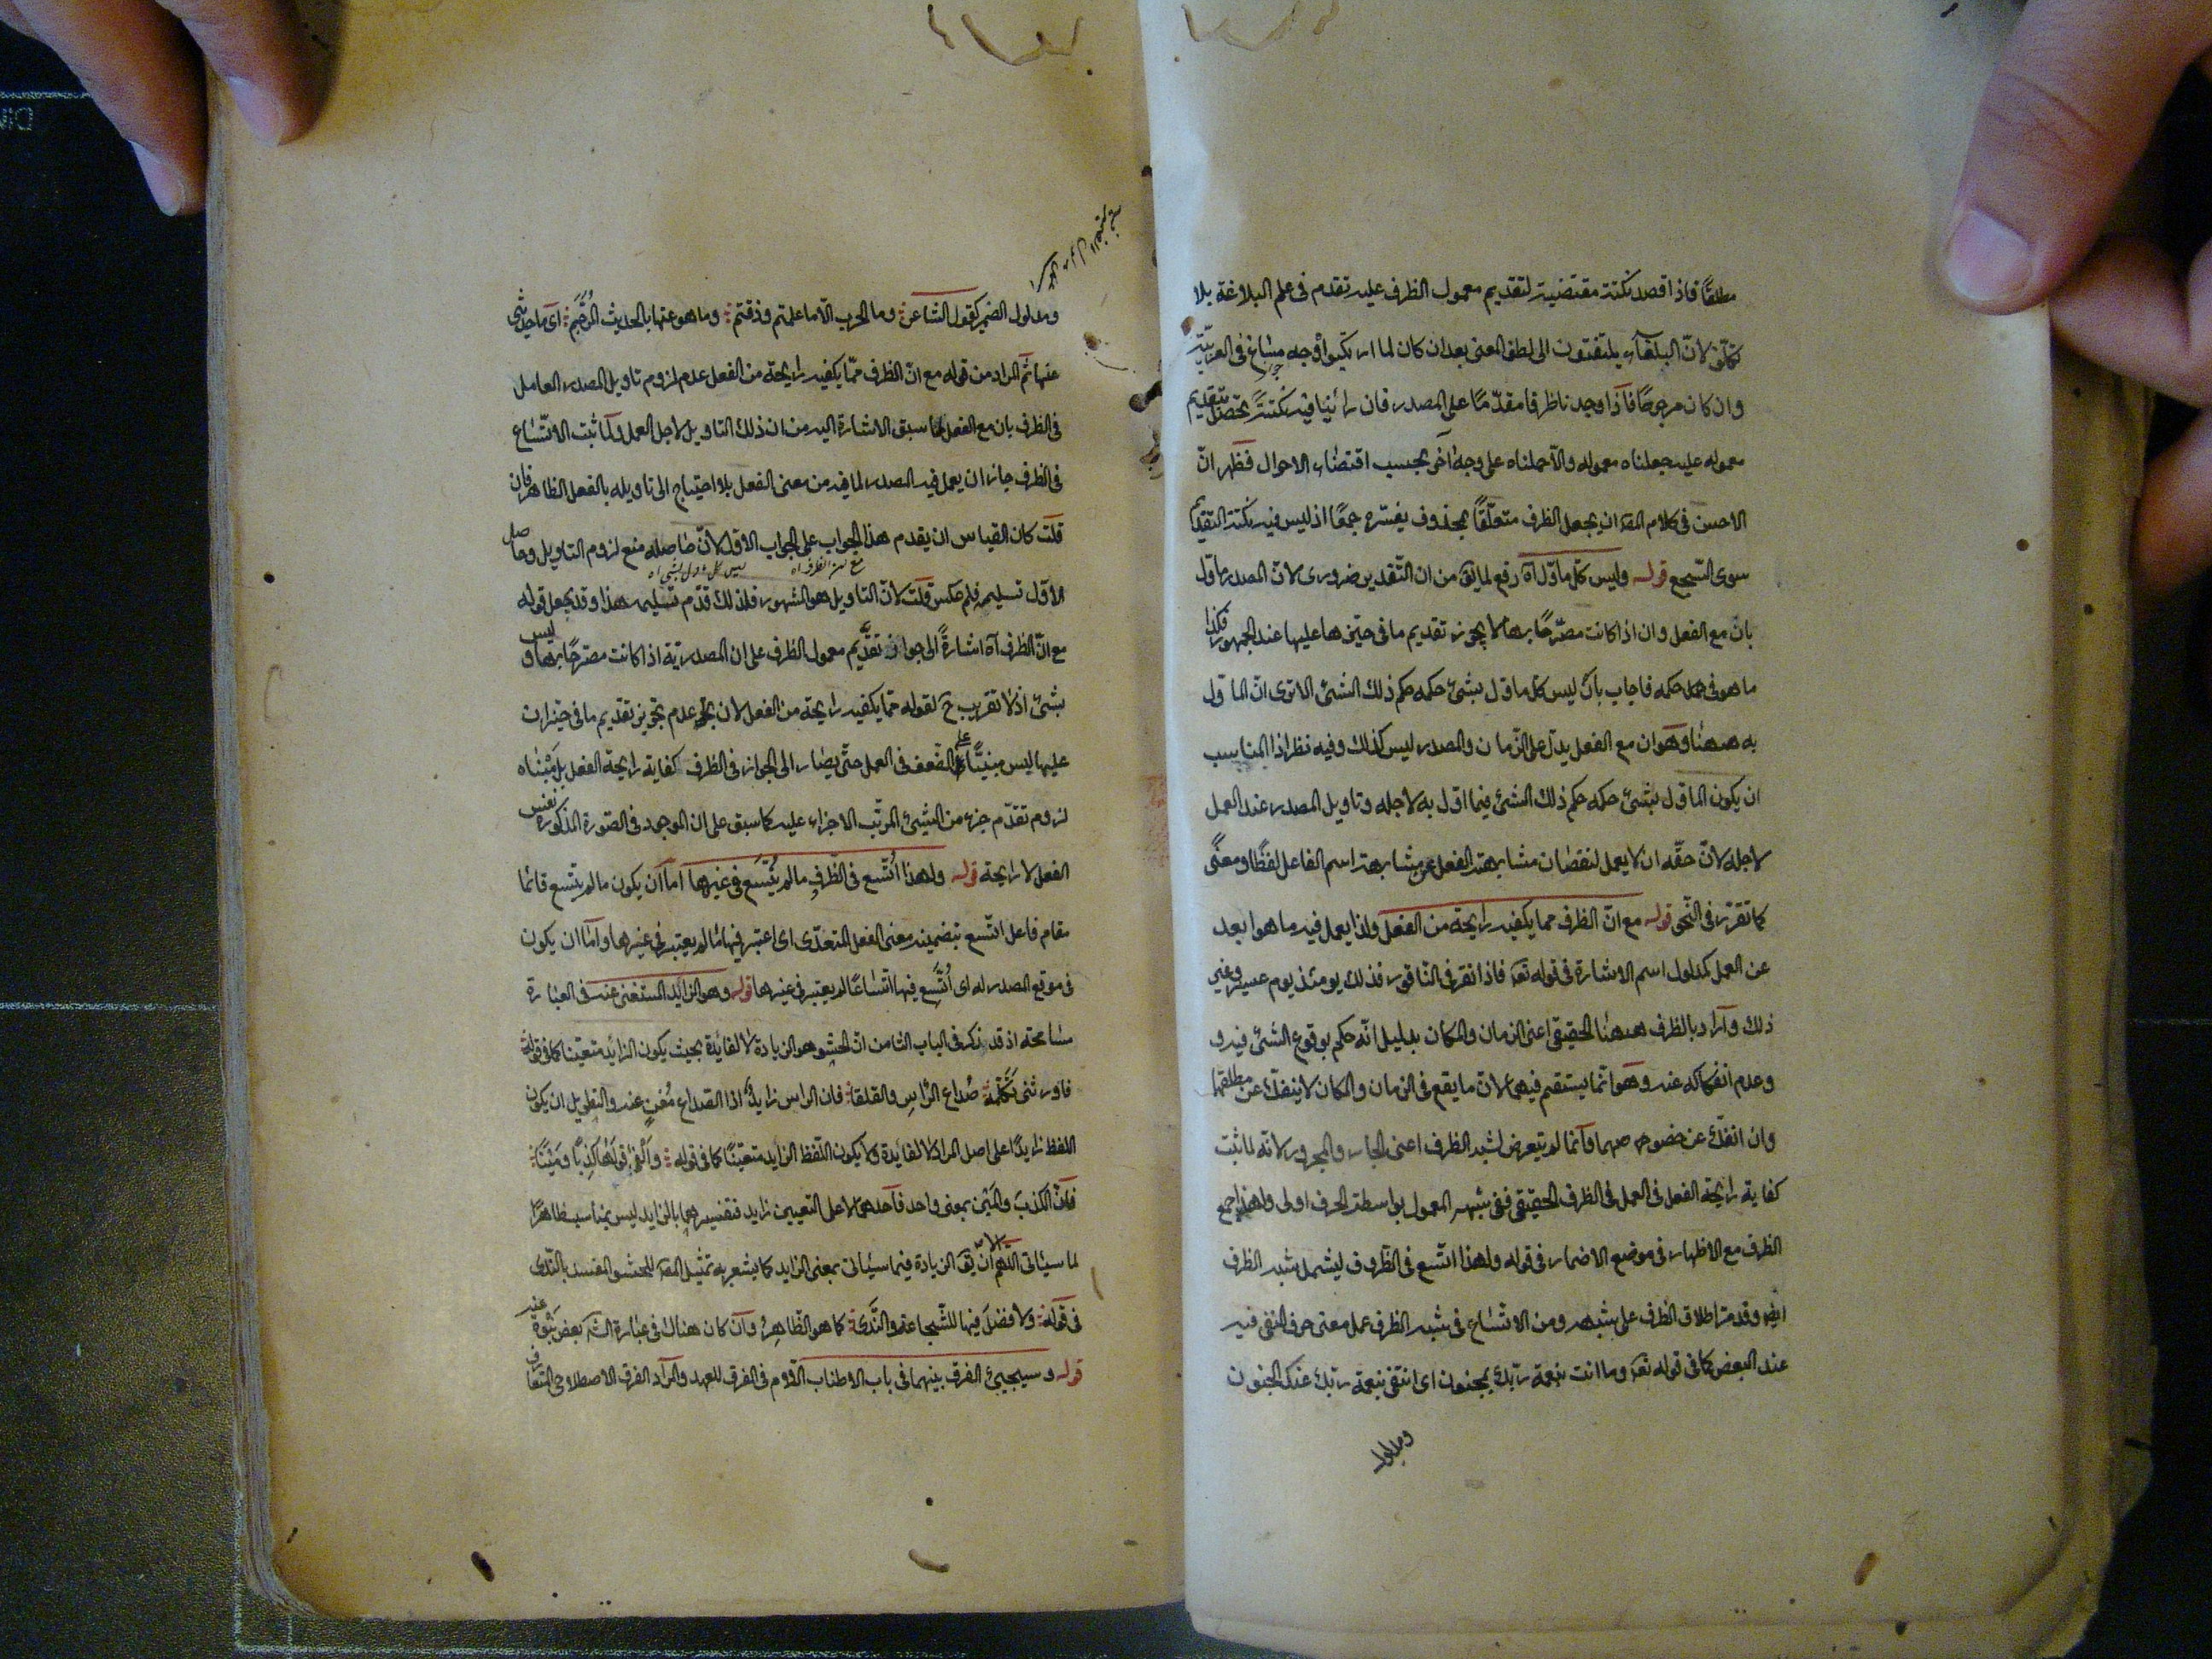 مطلقًا فاذا قصد نكتة مقتضية لتقديم معمول الظرف عليه تقدم فى علم البلاغة بلا
تكلّف لانّ البلغآء يلتفتون الى لطف المعنى بعد ان كان لما ارتكبوا وجه مساغ فى العربيّة
وان كان مرجوحًا فآذا وجدنا ظرفا مقدّمًا على المصدر فان رأينا فيه نكتةً تحصل بتقديم
معموله عليه جعلناه معموله والّا حملناه على وجه آخر بحسب اقتضاء الاحوال فظهر انّ
الاحسن فى كلام المصَ ان يجعل الظرف متعلّقًا بمحذوف يفسّره جمعًا اذ ليس فيه نكتة التقديم
سوى السّجع قوله وليس كلّ ماأوّل آه رفع لما يقَ من ان التّقدير ضرورى لانّ المصدر مأوّل
بان مع الفعل وان اذا كانت مصّرحًا بها لا يجوز تقديم ما فى حيّزها عليها عند الجمهور فكذا
ما هو فى حكمه فاجاب بانّ ليس كلّ ماأوّل بشئ حكمه حكم ذلك الشئ الا ترى انّ المأوّل
به ههنا وهو ان مع الفعل يدلّ على الزّمان والمصدر ليس كذلك وفيه نظر اذ المناسب
ان يكون المأوّل بشئ حكمه حكم ذلك الشئ فيما اوّل به لاجله وتاويل المصدر عند العمل
لاجله لانّ حقّه ان لا يعمل لنقصان مشابهته الفعل عن مشابهة اسم الفاعل لفظًا ومعنًى
كما تقرّر فى النّحو قوله مع انّ الظرف مما يكفيه رايحة من الفعل ولذا يعمل فيه ما هو ابعد
عن العمل كمدلول اسم الاشارة فى قوله تعَ فاذا نقر فى النّاقور فذلك يومئذ يوم عسير وغير
ذلك وآراد بالظرف ههنا الحقيقى اعنى الزمان والمكان بدليل انّه حكم بوقوع الشئ فيه و
وعدم انفكاكه عنه وهو انّما يستقيم فيهما لانّ ما يقع فى الزمان والمكان لا ينفكّ عن مطلقهما
وان انفكّ عن خصوصهما وآنما لم يتعرض لشبه الظرف اعنى الجار والمجرور لانّه لما ثبت
كفاية رايحة الفعل فى العمل فى الظرف الحقيقى ففى شبهه المعمول بواسطة الحرف اولى ولهذا جمع
الظرف مع الاظهار فى موضع الاضمار فى قوله ولهذا اتّسع فى الظّروف ليشمل شبه الظرف
ايضَ وقد مرّ اطلاق الظرف على شبهه ومن الاتّساع فى شبه الظرف عمل معنى حرف النفى فيه
عند البعض كما فى قوله تعَ وما انت بنعمة ربّك بمجنون اى انتفى بنعمة ربّك عنك الجنون
ومدلول
ومدلول الضمير كقول الشاعر وما الحرب الّا ما علمتم وذقتم وما هو عنها بالحديث المُرَجَّم اى ما حديثى
عنها ثم المراد من قوله مع انّ الظرف ممّا يكفيه رايحة من الفعل عدم لزوم تاويل المصدر العامل
فى الظرف بان مع الفعل لما سبق الاشارة اليه من ان ذلك التاويل لاجل العمل ولمّا ثبت الاتّساع
فى الظرف جاز ان يعمل فيه المصدر لما فيه من معنى الفعل بلا احتياج الى تاويله بالفعل الظاهر فان
قلت كان القياس ان يقدم هذا الجواب على الجواب الاوّل لانّ حاصله منع لزوم التاويل وحاصل
الاوّل تسليمه فلم عكس قلت لانّ التاويل هو المشهور فلذلك قدّم تسليمه هذا وقد يجعل قوله
مع انّ الظرف آه اشارةً الى جواز تقديم معمول الظرف على ان المصدريّة اذا كانت مصّرحًا بها وليس
بشئ اذ لا تقريب حَ لقوله ممّا يكفيه رايحة من الفعل لان عدم تجويز تقديم ما فى حيّز ان
عليها ليس مبنيًّا على الضّعف فى العمل حتّى يصار الى الجواز فى الظرف كفاية رايحة الفعل بل مبناه
لزوم تقدّم جزء من الشئ المرتّب الاجزاء عليه كما سبق على ان الموجود فى الصّورة المذكورة نفس
الفعل لا رايحة قوله ولهذا اُتّسع فى الظّرف ما لم يُتّسَع فى غيرها امّا ان يكون ما لم يتّسع قائما
مقام فاعل اتّسع بتضمينه معنى الفعل المتعدّى اى اعتبر فيها ما لم يعتبر فى غيرها وامّا ان يكون
فى موقع المصدر له اى اُتُّسِع فيها اتّساعًا لم يعتبر فى غيرها قوله وهو الزايد المستغنى عنه فى العبارة
مسامحة اذ قد ذكر فى الباب الثامن انّ الحشو هو الزيادة لا لفائدة بحيث يكون الزائد متعيّنا كما فى قوله
فاورثنى صُداع الرّأس والقلقا فان الراس زايدٌ اذ الصّداع مُغنٍ عنه والتطويل ان يكون
اللفظ زايدًا على اصل المراد لا لفائدة ولا يكون اللّفظ الزّايد متعيّنًا كما فى قوله والفى قولها كذبًا ومينًا
فانّ الكذبَ والمَيْن بمعنى واحد فآحدهما لا على التعيين زايد فتفسيرهما بالزايد ليس بمناسب ظاهرًا
لما سيأتى اللّهم الّا ان يقَ الزيادة فيما سيأتى بمعنى الزايد كما يشعر به تمثيل المصَ للحشو المفسد بالنّدى
فى قوله ولا فضلَ فيها للشّجاعة والنَّدى كما هو الظّاهر وان كان هناك فى عبارة الشَ بعض نبوة عنه
قوله وسيجيئ الفرق بينهما فى باب الاطناب اللّام فى الفرق للعهد والمرآد الفرق الاصطلاحى المتعارف